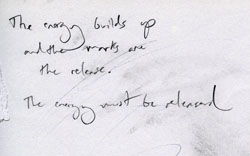 The energy builds up
and the marks are
the release.
The energy must be released